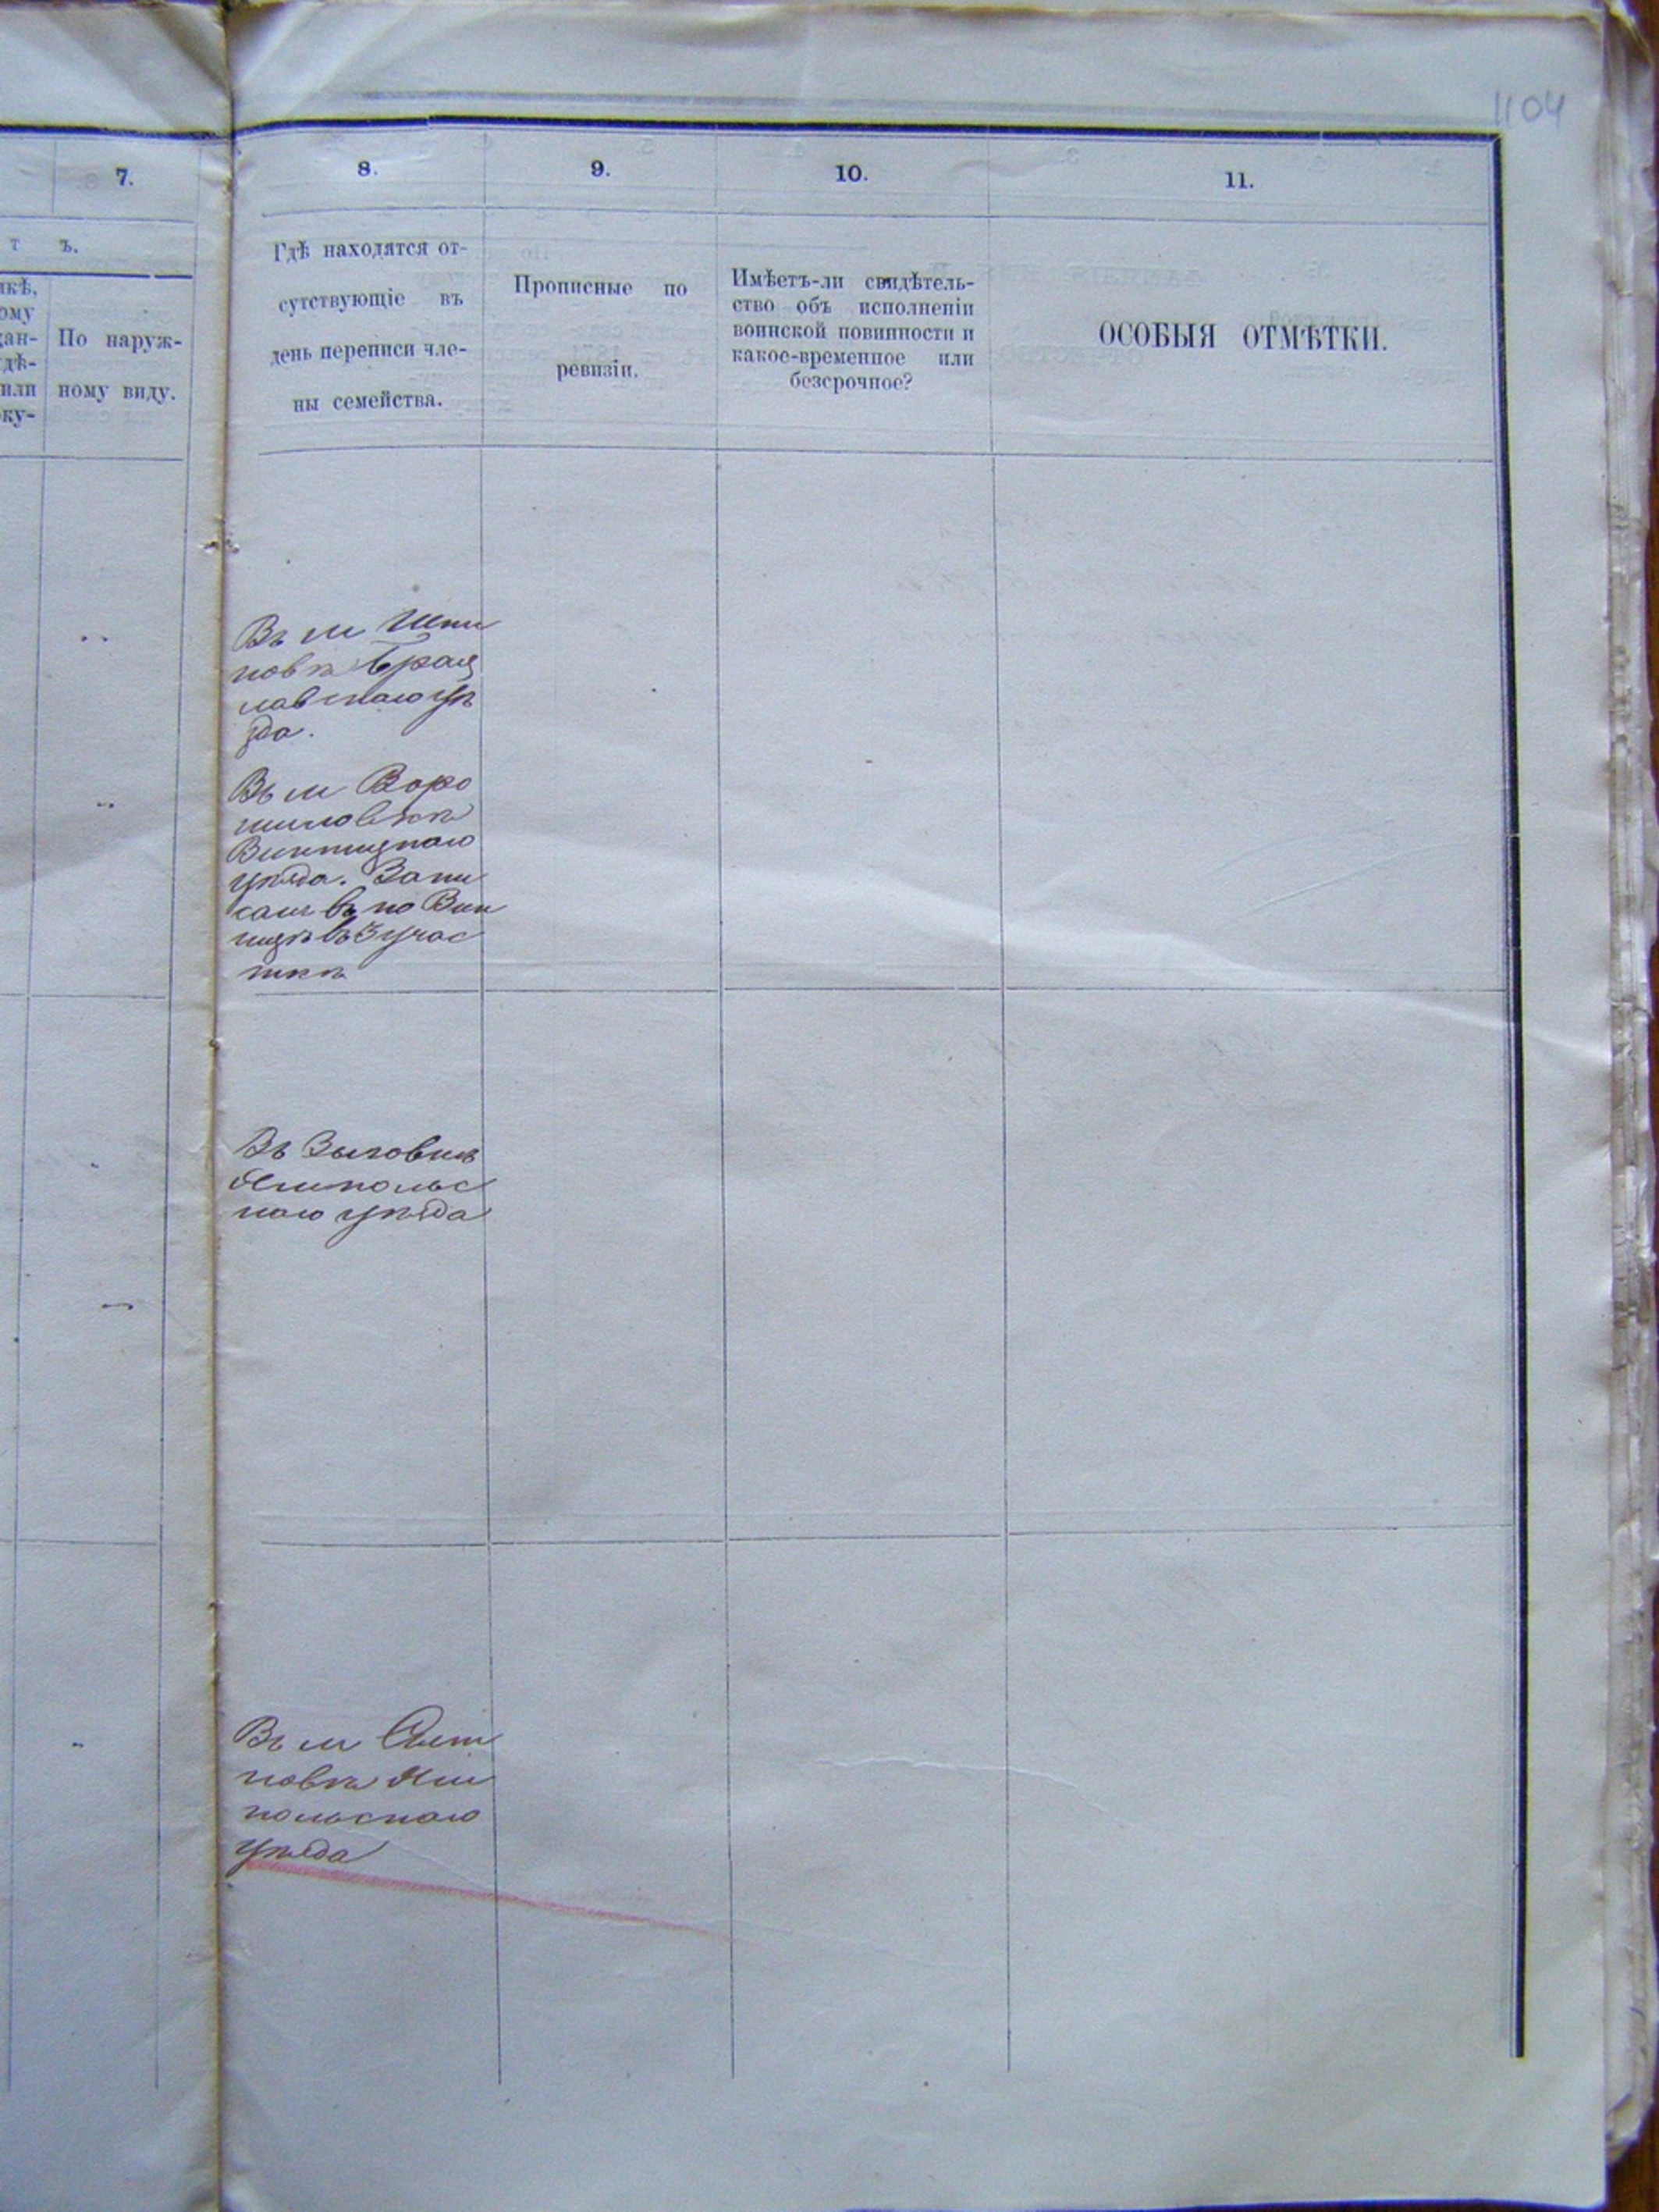 1104
7.
8.
9.
10.
11.
т ъ.
По наруж-
ному виду.
Гдѣ находятся от-
сутствующіе въ
день переписи чле-
ны семейства.
Прописные по
ревизіи.
Имѣетъ-ли свидѣтель-
ство объ исполненіи
воинской повинности и
какое-временное или
безсрочное?
ОСОБЫЯ ОТМѢТКИ.
Въ м Шпи
ковѣ Брац
лавскаго уѣ
зда.
Въ м Воро
шиловкѣ
Винницкаго
уѣзда. Запи
санъ по Вин
ницѣ въ 3 учас
ткѣ
Въ
Ямпольс
каго уѣзда
Въ м
Ям
польскаго
уѣзда